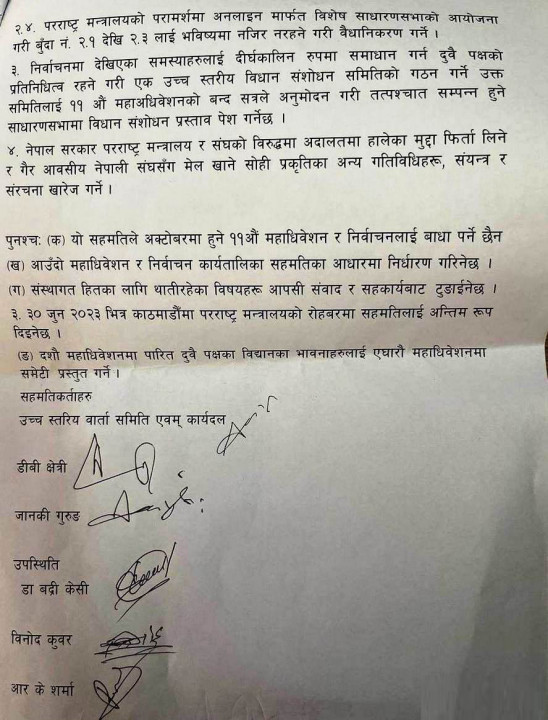 २.४. परराष्ट्र मन्त्रालयको परामर्शमा अनलाइन मार्फत विशेष साधारणसभाको आयोजना
गरी बुँदा नं. २.१ देखि २.३ लाई भविष्यमा नजिर नरहने गरी वैधानिकरण गर्ने ।
३. निर्वाचनमा देखिएका समस्याहरुलाई दीर्घकालिन रुपमा समाधान गर्न दुवै पक्षको
प्रतिनिधित्व रहने गरी एक उच्च स्तरीय विधान संशोधन समितिको गठन गर्ने उक्त
समितिलाई ११ औं महाअधिवेशनको बन्द सत्रले अनुमोदन गरी तत्पश्चात सम्पन्न हुने
साधारणसभामा विधान संशोधन प्रस्ताव पेश गर्नेछ ।
४. नेपाल सरकार परराष्ट्र मन्त्रालय र संघको विरुद्धमा अदालतमा हालेका मुद्दा फिर्ता लिने
र गैर आवसीय नेपाली संघसँग मेल खाने सोही प्रकृतिका अन्य गतिविधिहरू, संयन्त्र र
संरचना खारेज गर्ने ।
पुनश्च: (क) यो सहमतिले अक्टोबरमा हुने ११औं महाधिवेशन र निर्वाचनलाई बाधा पर्ने छैन
(ख) आउँदो महाधिवेशन र निर्वाचन कार्यतालिका सहमतिका आधारमा निर्धारण गरिनेछ ।
(ग) संस्थागत हितका लागि थाती रहेका विषयहरू आपसी संवाद र सहकार्यबाट टुङ्गाईनेछ ।
३. ३० जुन २०२३ भित्र काठमाडौंमा परराष्ट्र मन्त्रालयको रोहबरमा सहमतिलाई अन्तिम रूप
दिइनेछ ।
(ङ) दशौं महाधिवेशनमा पारित दुवै पक्षका विद्यानका भावनाहरुलाई एघारौ महाधिवेशनमा
समेटी प्रस्तुत गर्ने ।
सहमतिकर्ताहरु
उच्च स्तरिय वार्ता समिति एवम् कार्यदल
डीबी क्षेत्री
जानकी गुरुङ
उपस्थिति
डा बद्री केसी
विनोद कुवर
आर के शर्मा